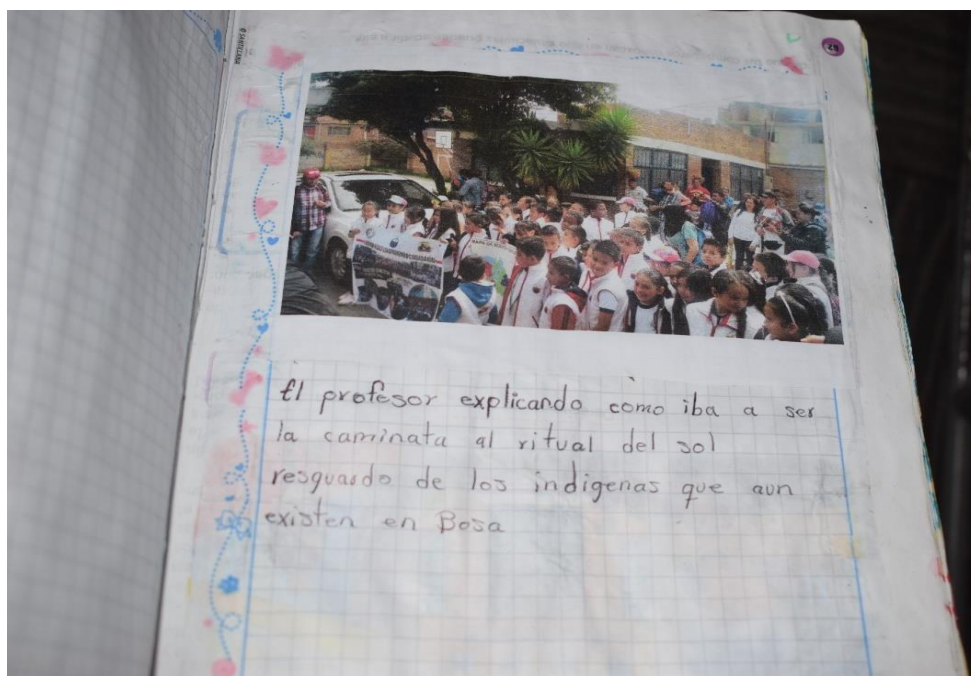 El profesor explicando como iba a ser
la caminata al ritual del sol
resguardo de los indigenas que aun
existen en Bosa